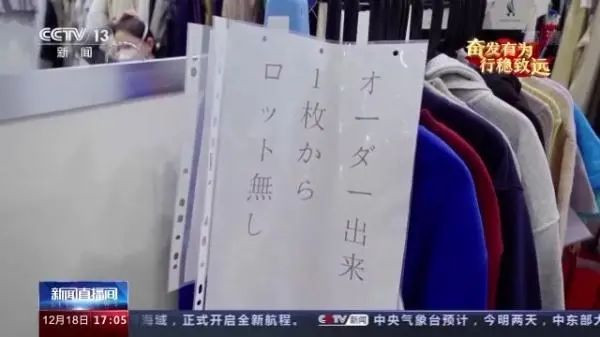 CCTV 13
新闻
奋发有为
行稳致远
オーダー出来
1枚から
ロット無し
新闻直播间
12月18日 17:05
海域，正式开启全新航程。 CCTV新闻 中央气象台预计，今明两天，中东部大